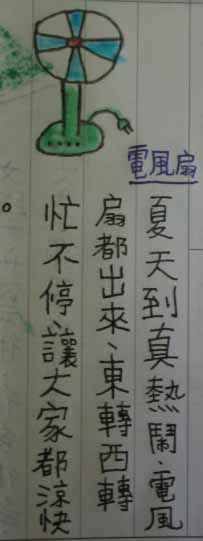 電風扇
夏天到真熱鬧、電風
扇都出來、東轉西轉
忙不停、讓大家都涼快
。